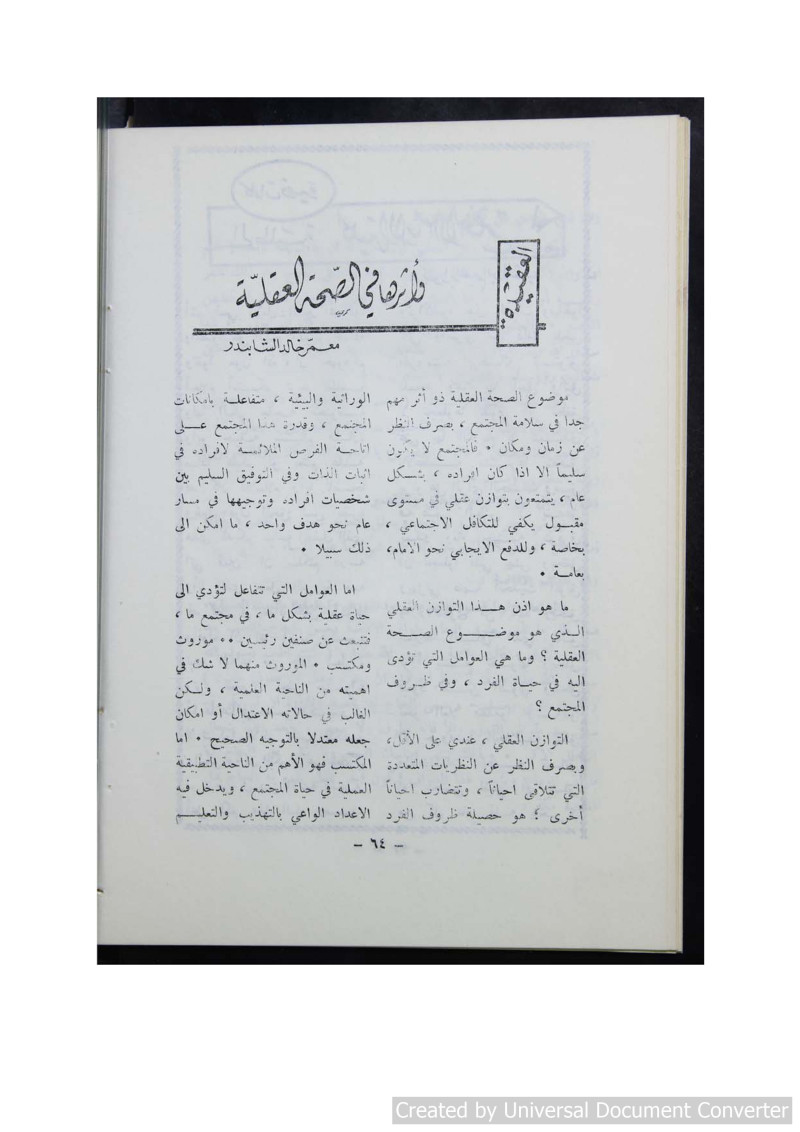 العقيدة
وأثرها في الصحة العقلية
معمر خالد الشابندر
موضوع الصحة العقلية ذو أثر مهم
جدا في سلامة المجتمع ، بصرف النظر
عن زمان ومكان ٠ فالمجتمع لا يكون
سليماً الا اذا كان افراده ، بشكل
عام ، يتمتعون بتوازن عقلي في مستوى
مقبول يكفي للتكافل الاجتماعي ،
بخاصة ، وللدفع الايجابي نحو الامام،
بعامة ٠
ما هو اذن هذا التوازن العقلي
الذي هو موضوع الصحة
العقلية ؟ وما هي العوامل التي تؤدى
اليه في حياة الفرد ، وفي ظروف
المجتمع ؟
التوازن العقلي ، عندي على الأقل،
وبصرف النظر عن النظريات المتعددة
التي تتلاقى احياناً ، وتتضارب احياناً
أخرى ؛ هو حصيلة ظروف الفرد
الوراثية والبيئية ، متفاعلة بامكانات
المجتمع ، وقدرة هذا المجتمع على
اتاحة الفرص الملائمة لافراده في
اثبات الذات وفي التوفيق السليم بين
شخصيات افراده وتوجيهها في مسار
عام نحو هدف واحد ، ما امكن الى
ذلك سبيلا ٠
اما العوامل التي تتفاعل لتؤدي الى
حياة عقلية بشكل ما ، في مجتمع ما ،
فتنبعث عن صنفين رئيسين ٠٠ موروث
ومكتسب ٠ الموروث منهما لا شك في
اهميته من الناحية العلمية ، ولكن
الغالب في حالاته الاعتدال أو امكان
جعله معتدلا بالتوجيه الصحيح ٠ اما
المكتسب فهو الأهم من الناحية التطبيقية
العملية في حياة المجتمع ، ويدخل فيه
الاعداد الواعي بالتهذيب والتعليم
– ٦٤ –
Created by Universal Document Converter